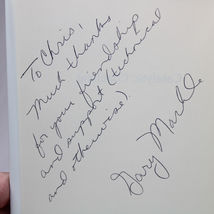 To Chris,
Much thanks
for your friendship
and support (technical
and otherwise).
Gary